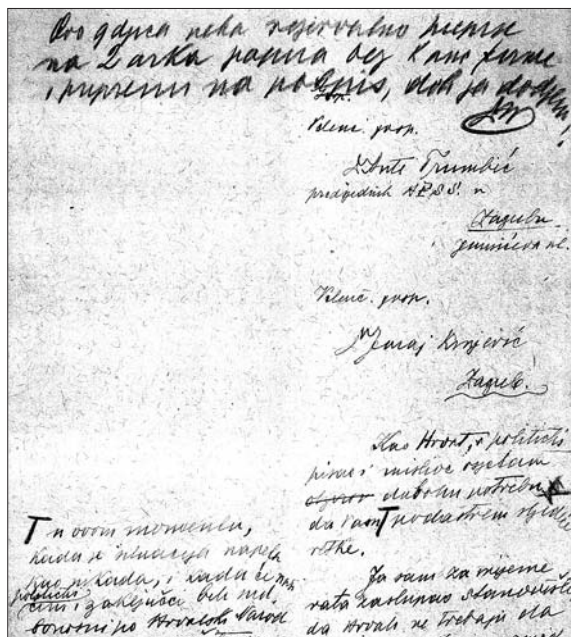 Ovo gdjica neka rezervalno prepiše
na 2 arka papira bez Kanc. forme
i pripremi na podpis, dok ja dodjem!
Gosp.
Velenc. gosp.
Dr Ante Trumbić
predsjednik H.P.S.S. u
Zagrebu
ul.
Velenc. gosp.
Dr Juraj Krnjević
Zagreb.
Kao Hrvat, i politički
pisac i mislioc osjećam
duboku potrebu
da Vam podastrem sljedeće
retke.
Ja sam za vrijeme
rata zastupao stanovište
da Hrvati ne trebaju da
T u ovom momentu,
kada je situacija napeta
kao nikada, i kada će naši
politički
čini i zaključci biti od
po Hrvatski Narod